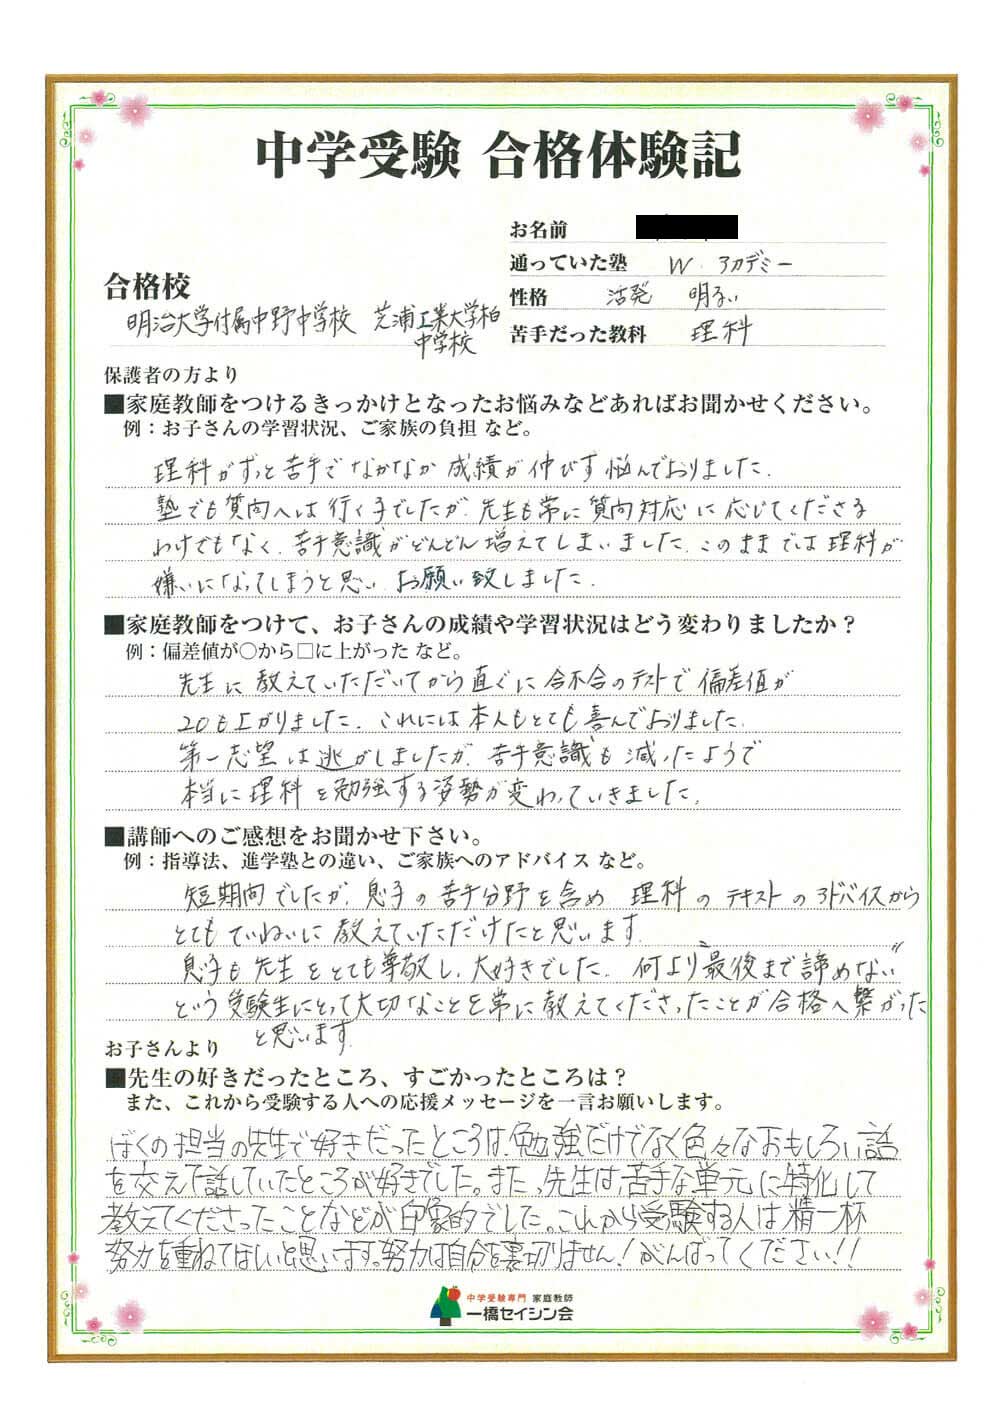 中学受験 合格体験記
お名前
通っていた塾 W.アカデミー
性格 活発 明るい
苦手だった教科 理科
合格校
明治大学付属中野中学校 芝浦工業大学柏
中学校
保護者の方より
■家庭教師をつけるきっかけとなったお悩みなどあればお聞かせください。
例：お子さんの学習状況、ご家族の負担 など。
理科がずっと苦手でなかなか成績が伸びず悩んでおりました.
塾でも質問へは行く子でしたが、先生も常に質問対応に応じてくださる
わけでもなく、苦手意識がどんどん増えてしまいました.このままでは理科が
嫌いになってしまうと思い、お願い致しました.
■家庭教師をつけて、お子さんの成績や学習状況はどう変わりましたか？
例：偏差値が○から□に上がった など。
先生に教えていただいてから直ぐに合不合のテストで偏差値が
20も上がりました.これには本人もとても喜んでおりました.
第一志望は逃がしましたが、苦手意識も減ったようで
本当に理科を勉強する姿勢が変わっていきました.
■講師へのご感想をお聞かせ下さい。
例：指導法、進学塾との違い、ご家族へのアドバイス など。
短期間でしたが、息子の苦手分野を含め 理科のテキストのアドバイスから
とてもていねいに教えていただけたと思います.
息子も先生をとても尊敬し、大好きでした.何より"最後まで諦めない"
という受験生にとって大切なことを常に教えてくださったことが合格へ繋がった
と思います.
お子さんより
■先生の好きだったところ、すごかったところは？
また、これから受験する人への応援メッセージを一言お願いします。
ぼくの担当の先生で好きだったところは、勉強だけでなく色々なおもしろい話
を交えて話していたところが好きでした。また、先生は苦手な単元に特化して
教えてくださったことなどが印象的でした。これから受験する人は精一杯
努力を重ねてほしいと思います。努力は自分を裏切りません！がんばってください!!
中学受験専門 家庭教師
一橋セイシン会